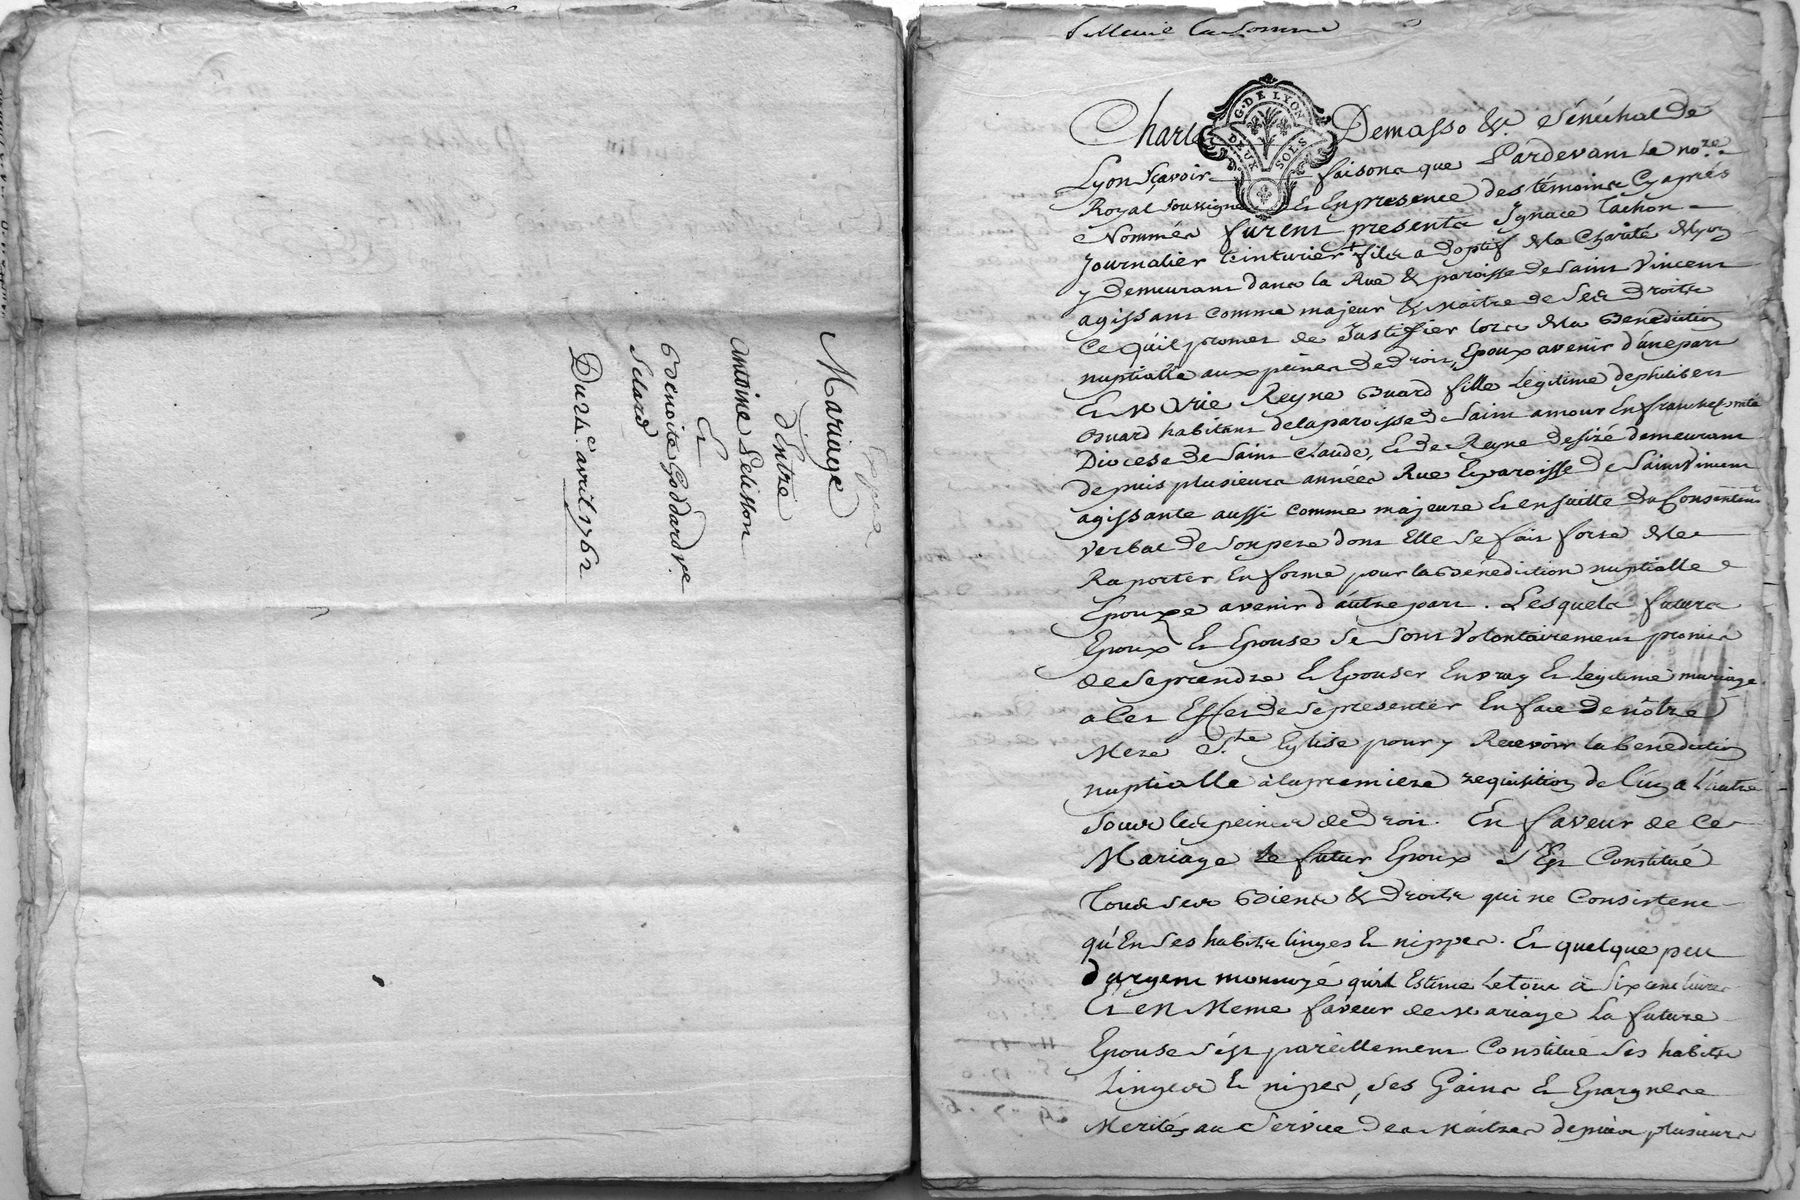 Expéd
Mariage
d'Entre
Antoine Pelisson
Et
Benoite Goddard vᵉ
Selard
Du 24ᵉ avril 1762
la somme
Charles Demasso &. Sénéchal de
G. DE LYON
DEUX SOLS
Lyon Sçavoir faisons que Pardevant le noʳᵉ
Royal soussigné Et En presence des témoins Cy aprés
Nommés furent presents Ignace Tachon
Journalier teinturier fils adoptif de la Charité de Lyon
y Demeurant dans la Rue & paroisse de Saint Vincent
agissant comme majeur & Maitre de Ses Droits
Ce qu'il promet de Justiffier lors de la Benediction
nuptialle aux peines de Droit, Epoux avenir d'une part
Et Marie Reyne Buard fille légitime de philibert
Buard habitant de la paroisse de Saint amour En franche Comté
Diocese de Saint Claude, Et de Reyne demeurant
depuis plusieurs années Rue Et paroisse de Saint Vincent
agissante aussi comme majeure Et ensuitte du Consentemᵗ
verbal de son pere dont Elle se fait forte de le
Raporter En forme pour la Benediction nuptialle
Epouze avenir d'autre part. Lesquels futurs
Epoux Et Epouse se sont Volontairement promis
de se prendre Et Epouser En vray Et Legitime mariage
a Cet Effet de se presenter En face de nôtre
Mere Sᵗᵉ Eglise pour y Recevoir la benediction
nuptialle à la premiere requisition de l'un a l'autre
sous les peines de Droit. En faveur de Ce
Mariage Le futur Epoux s'Est Constitué
Tous ses Biens & Droits qui ne Consistent
qu'En ses habits linges Et nippes. Et quelque peu
d'argent monnoyé qu'il Estime le tout à Six cent livres
Et en Meme faveur de Mariage La future
Epouse s'est pareillement Constitué Ses habits
Linges Et nipes, ses Gains Et Epargnes
Merités au Service des Maitres depuis plusieurs